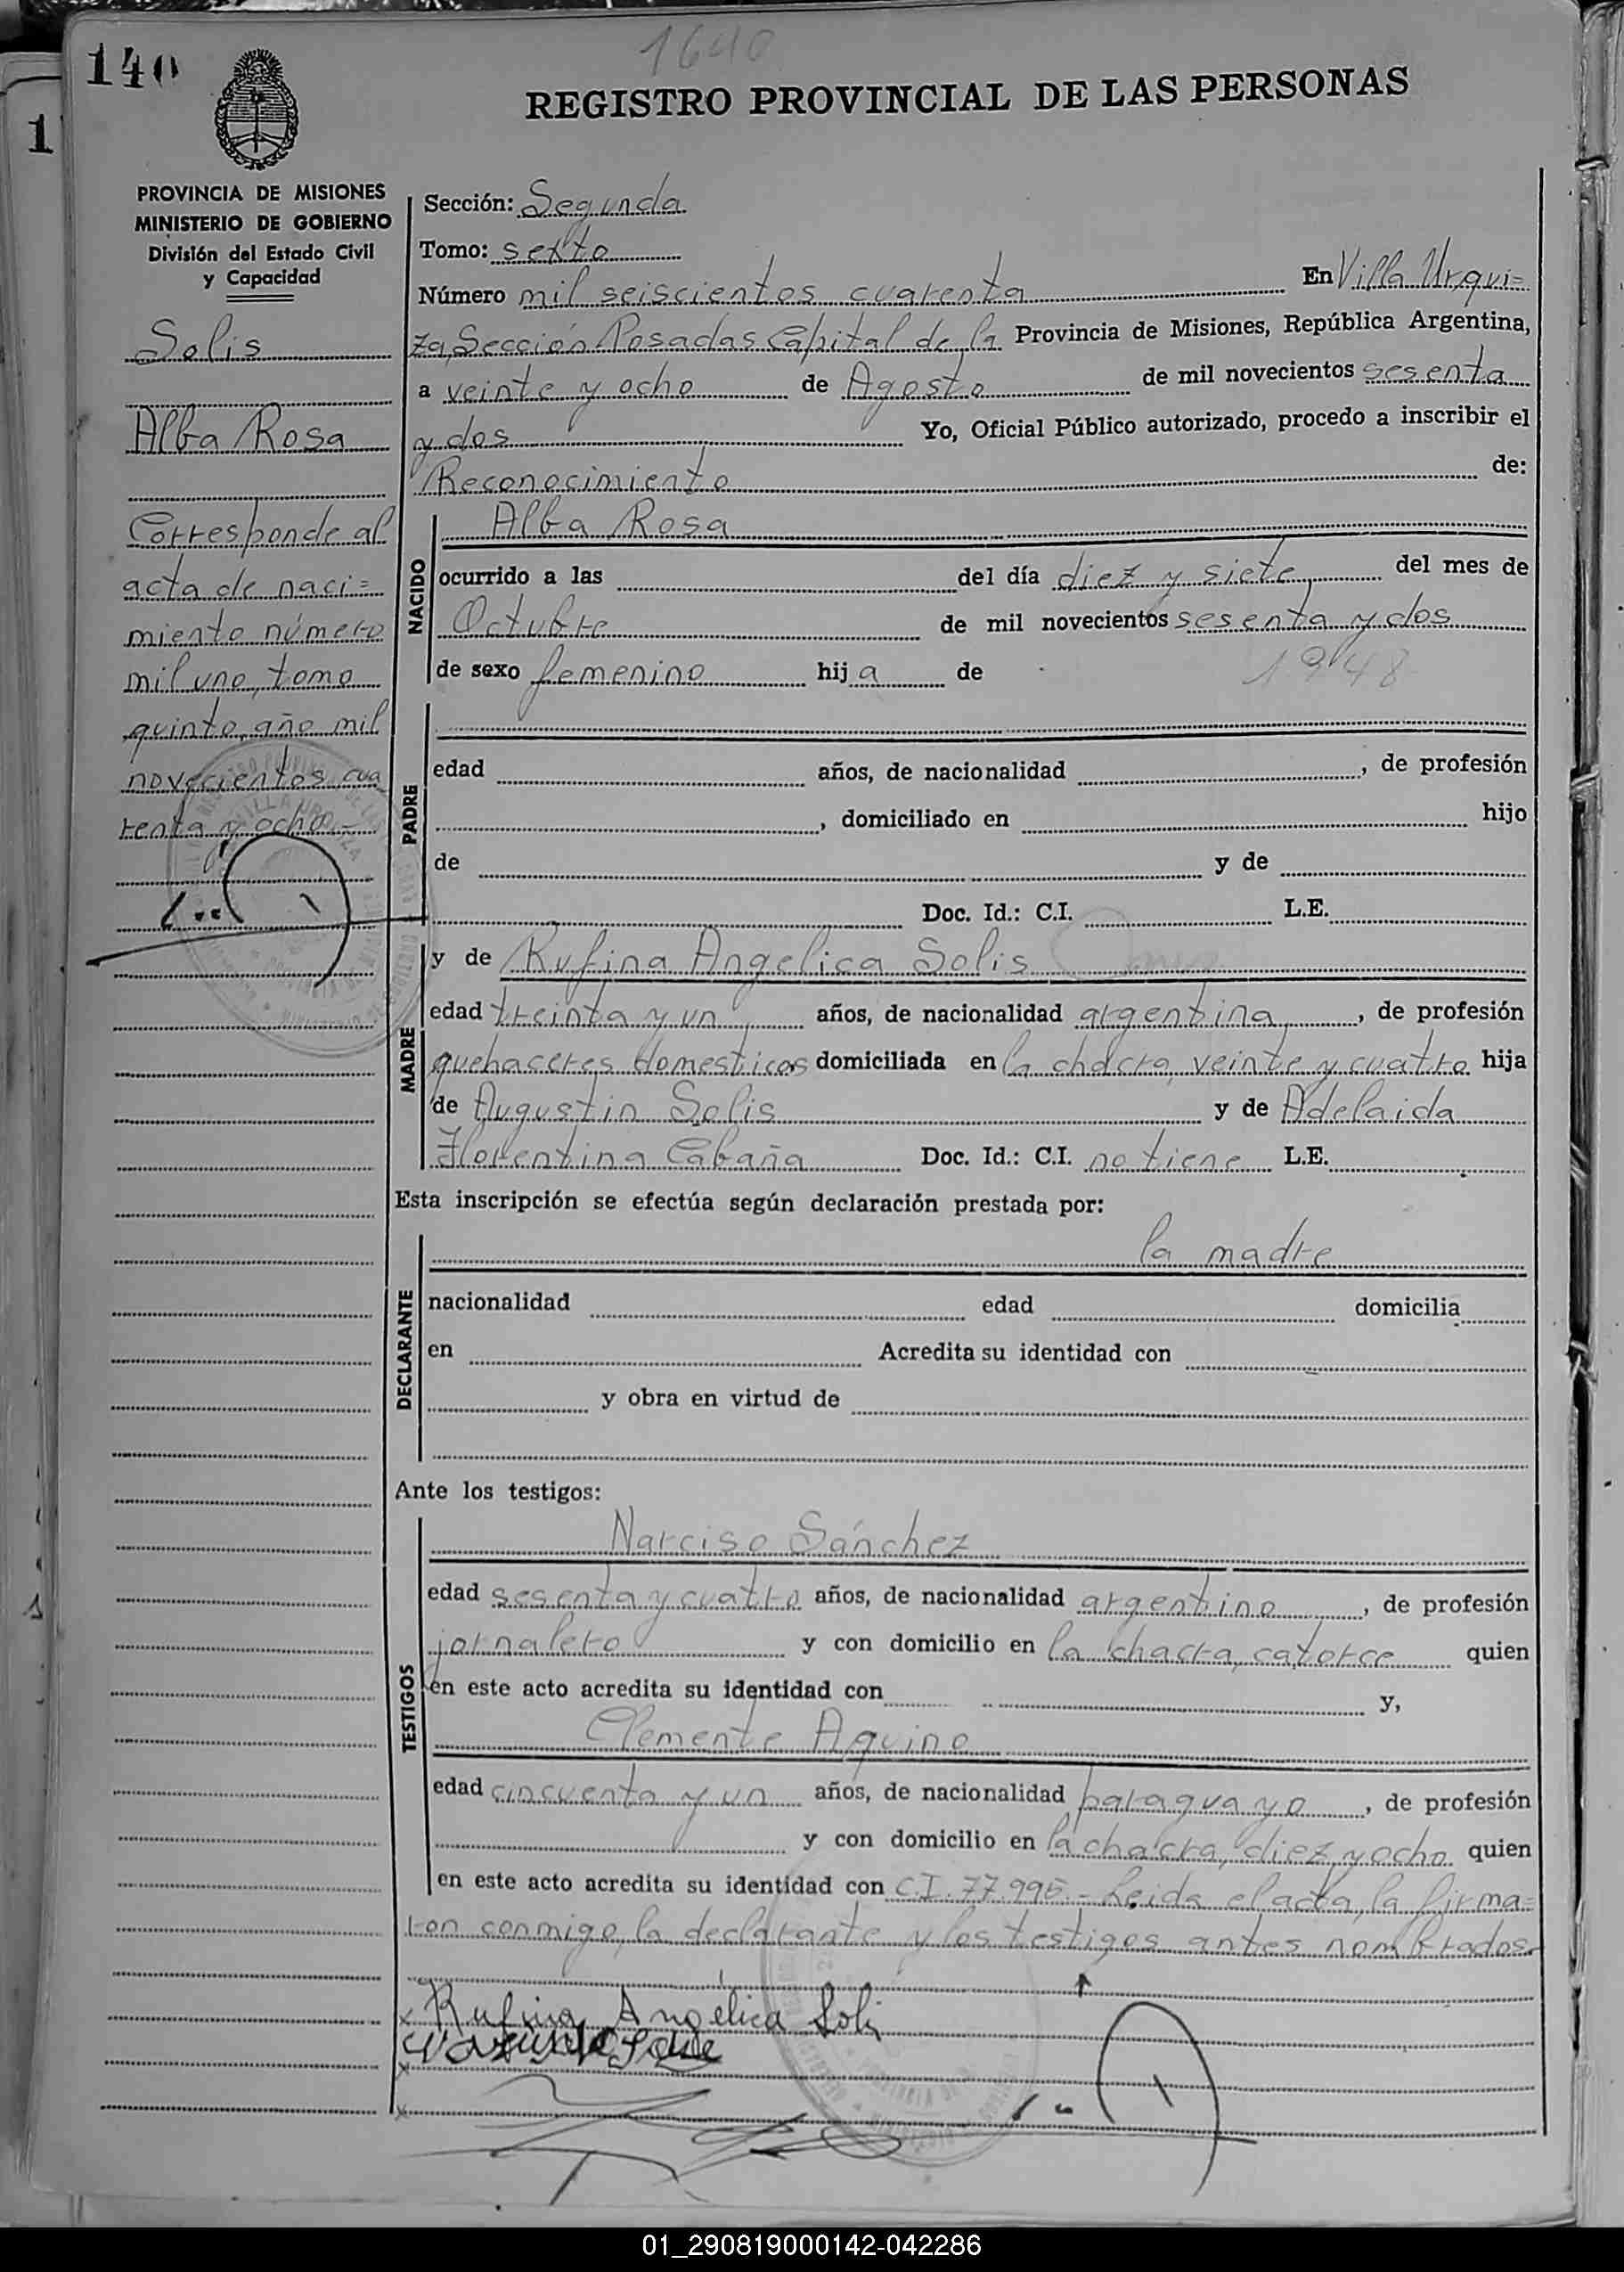 140
1640
REGISTRO PROVINCIAL DE LAS PERSONAS
1
PROVINCIA DE MISIONES
MINISTERIO DE GOBIERNO
División del Estado Civil
y Capacidad
Solis
Alba Rosa
Corresponde al
acta de naci=
miento número
mil uno, tomo
quinto, año mil
novecientos cua
renta y ocho.-
Sección: Segunda
Tomo: sexto
Número mil seiscientos cuarenta En Villa Urqui=
za, Sección Posadas Capital de la Provincia de Misiones, República Argentina,
a veinte y ocho de Agosto de mil novecientos sesenta
y dos Yo, Oficial Público autorizado, procedo a inscribir el
Reconocimiento de:
NACIDO
Alba Rosa
ocurrido a las del día diez y siete, del mes de
Octubre de mil novecientos sesenta y dos
de sexo femenino hija de 1948
PADRE
edad años, de nacionalidad , de profesión
, domiciliado en hijo
de y de
Doc. Id.: C.I. L.E.
MADRE
y de Rufina Angelica Solis
edad treinta y un, años, de nacionalidad argentina, , de profesión
quehaceres domesticos domiciliada en la chacra, veinte y cuatro hija
de Augustin Solis y de Adelaida
Florentina Cabaña Doc. Id.: C.I. no tiene L.E.
Esta inscripción se efectúa según declaración prestada por:
DECLARANTE
la madre
nacionalidad edad domicilia
en Acredita su identidad con
y obra en virtud de
Ante los testigos:
TESTIGOS
Narciso Sánchez
edad sesenta y cuatro años, de nacionalidad argentino , de profesión
jornalero y con domicilio en la chacra, catorce quien
en este acto acredita su identidad con y,
Clemente Aquino
edad cincuenta y un años, de nacionalidad paraguayo , de profesión
y con domicilio en la chacra, diez y ocho quien
en este acto acredita su identidad con C.I. 77.995.- Leida el acta, la firma=
ron conmigo, la declarante y los testigos antes nombrados.
x Rufina Angélica Solis
x
x
01_290819000142-042286